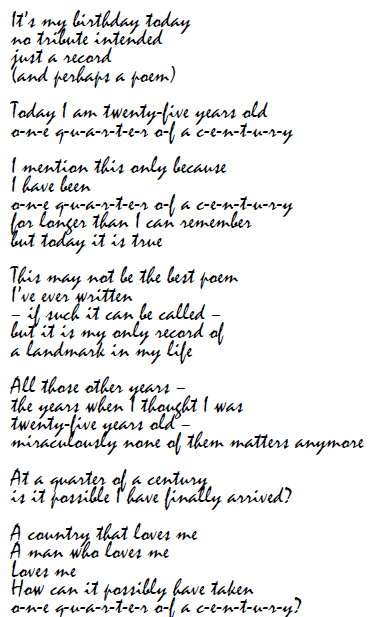 It's my birthday today
no tribute intended
just a record
(and perhaps a poem)

Today I am twenty-five years old
o-n-e q-u-a-r-t-e-r o-f a c-e-n-t-u-r-y

I mention this only because
I have been
o-n-e q-u-a-r-t-e-r o-f a c-e-n-t-u-r-y
for longer than I can remember
but today it is true

This may not be the best poem
I've ever written
– if such it can be called –
but it is my only record of
a landmark in my life

All those other years –
the years when I thought I was
twenty-five years old –
miraculously none of them matters anymore

At a quarter of a century
is it possible I have finally arrived?

A country that loves me
A man who loves me
Loves me
How can it possibly have taken
o-n-e q-u-a-r-t-e-r o-f a c-e-n-t-u-r-y?